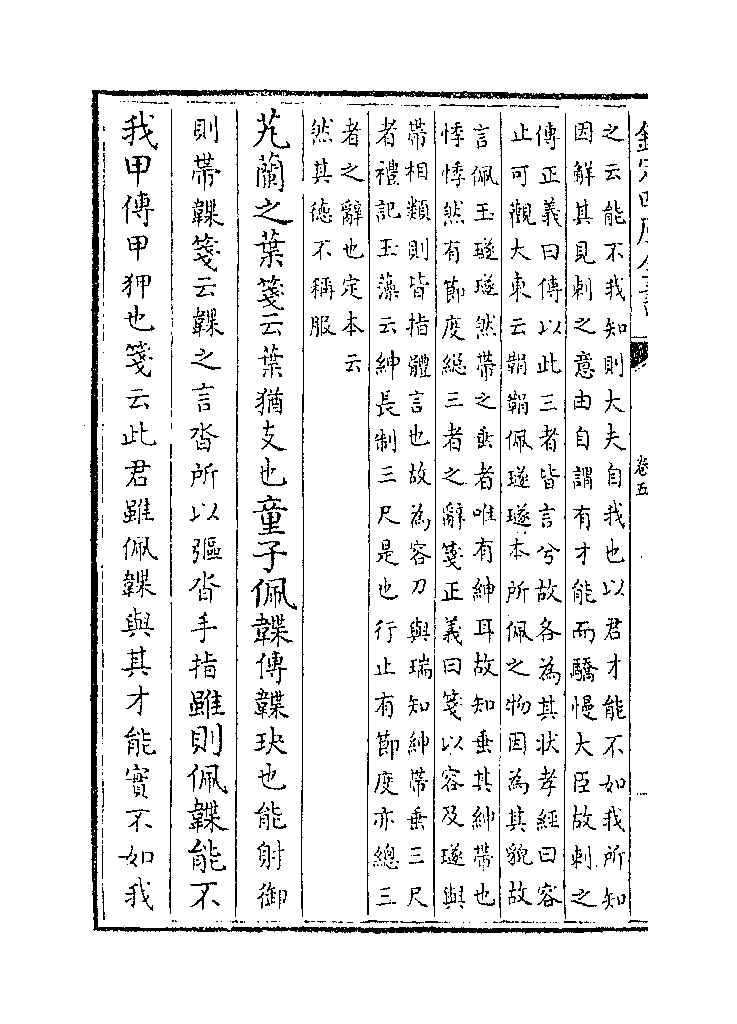 欽定四庫全書
卷五
之云能不我知則大夫自我也以君才能不如我所知
因解其見刺之意由自謂有才能而驕慢大臣故刺之
傳正義曰傳以此三者皆言兮故各為其狀孝經曰容
止可觀大東云鞙鞙佩璲璲本所佩之物因為其貌故
言佩玉璲璲然帶之垂者唯有紳耳故知垂其紳帶也
悸悸然有節度緫三者之辭箋正義曰箋以容及璲與
帶相類則皆指體言也故為容刀與瑞知紳帶垂三尺
者禮記玉藻云紳長制三尺是也行止有節度亦總三
者之辭也定本云
然其德不稱服
芄蘭之葉箋云葉猶支也童子佩韘傳韘玦也能射御
則帶韘箋云韘之言沓所以彄沓手指雖則佩韘能不
我甲傳甲狎也箋云此君雖佩韘與其才能實不如我